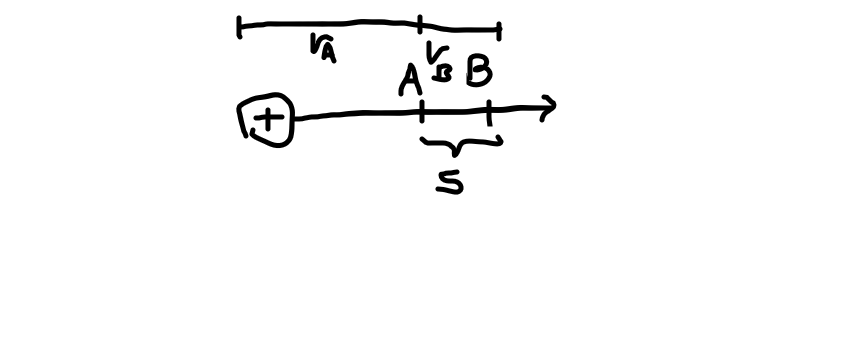 r_A
r_B
A B
+
S